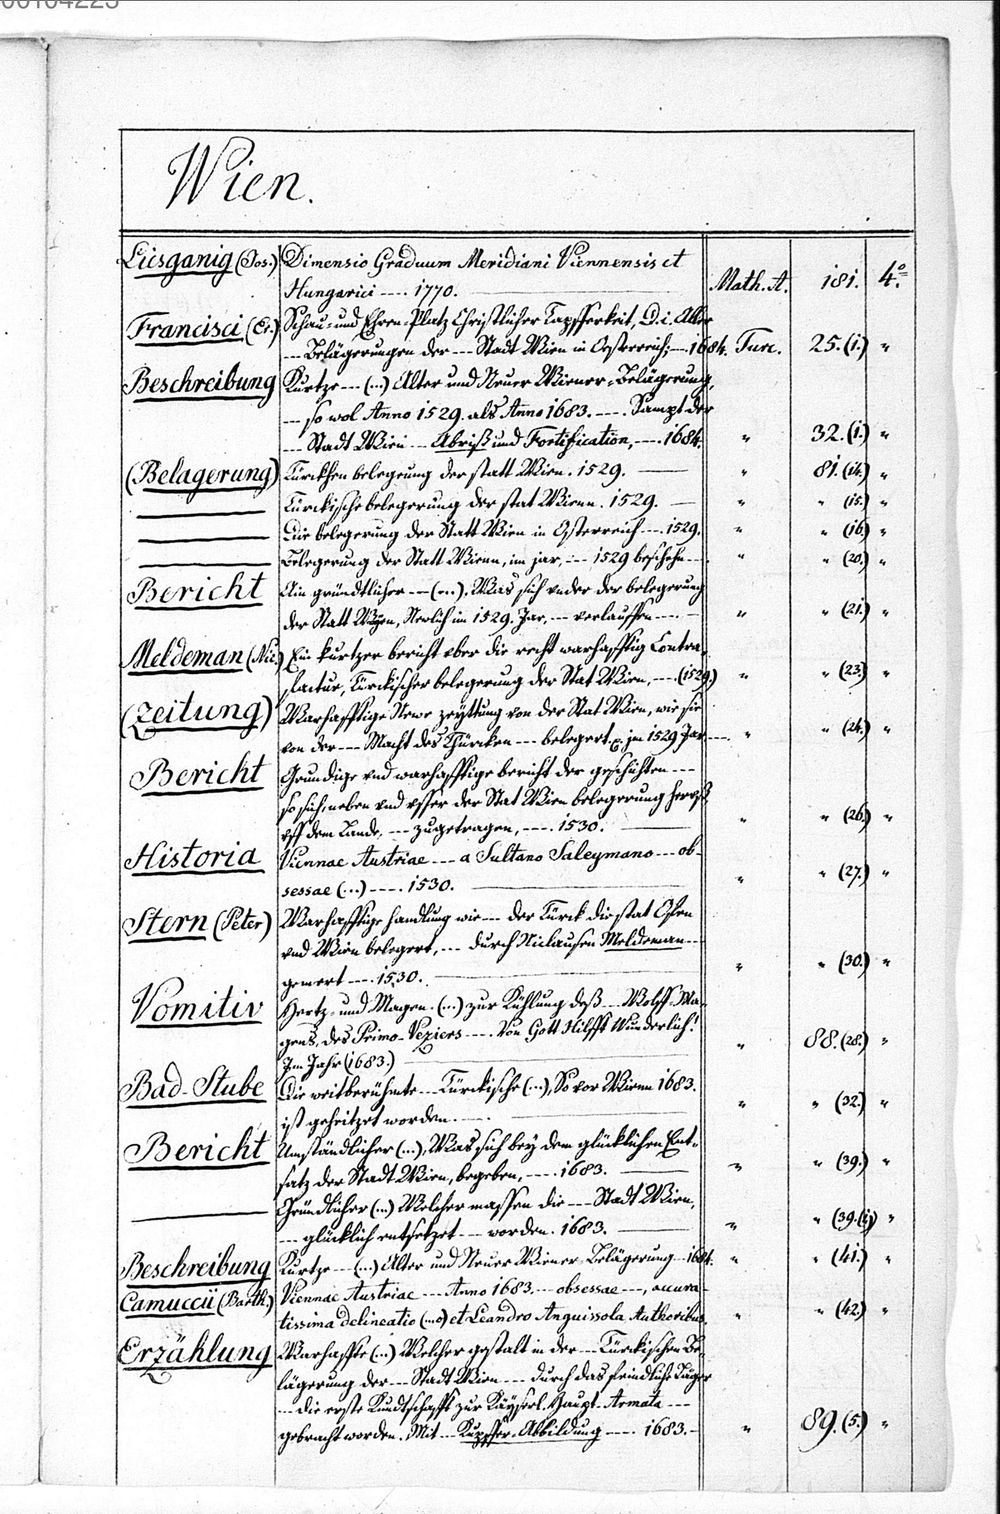 00104223
Wien.
Liesganig (Jos.) Dimensio Graduum Meridiani Viennensis et
Hungarici --- 1770. Math. A. 181. 4.º
Francisci (Er.) Schau- und Ehren-Platz Christlicher Tapfferkeit, D. i. Aller
--- Belägerungen der --- Stadt Wien in Oesterreich; --- 1684. Turc. 25. (1.) "
Beschreibung Kurtze --- (...) Alter und Neuer Wiener-Belägerung,
--- so wol Anno 1529. als Anno 1683. --- Sampt der
--- Stadt Wien --- Abriß und Fortification, --- 1684. " 32. (1.) "
(Belagerung) Türckhen belegeung der statt Wien. 1529. " 81. (14.) "
——— Türckische belegerung der stat Wienn. 1529. " " (15.) "
——— Die belegerung der Statt Wien in Osterreich --- 1529. " " (16.) "
——— Belegerung der Statt Wienn, im jar, --- 1529 beschehn --- " " (20.) "
Bericht Ain gründtlicher --- (...), Was sich under der belegerung
der Statt Wyen, Newlich im 1529. Jar, --- verlauffen --- " " (21.) "
Meldeman (Nic.) Ein kurtzer bericht vber die recht warhafftig Contra-
factur, Türckischer belegerung der Stat Wien, --- (1529.) " " (23.) "
(Zeitung) Warhafftige Newe zeyttung von der Stat Wien, wie sie
von der --- Macht des Thürcken --- belegert, jm 1529 Jar --- " " (24.) "
Bericht Grundige vnd warhafftige bericht der geschichten ---
so sich, neben vnd vsser der Stat Wien belegerung
vff dem Lande, --- zugetragen, --- 1530. " " (26.) "
Historia Viennae Austriae --- a Sultano Saleymano --- ob-
sessae (...) --- 1530. " " (27.) "
Stern (Peter) Warhafftige handlung wie --- der Türck die stat Ofen
vnd Wien belegert, --- durch Niclausen Meldeman ---
gemert --- 1530. " " (30.) "
Vomitiv Hertz- und Magen- (...) zur Kühlung deß --- Wolff-Ma-
gens, des Primo-Veziers --- Von Gott Hilfft Wunderlich!
Im Jahr (1683.) " 88. (28.) "
Bad-Stube Die weitberühmte --- Türckische (...), So vor Wienn 1683.
ist geheitzet worden. --- " " (32.) "
Bericht Umständlicher (...), Was sich bey dem glücklichen Ent-
satz der Stadt Wien, begeben, --- 1683. " " (39.) "
——— Gründlicher (...) Welcher massen die --- Stadt Wien,
--- glücklich entsetzet --- worden. 1683. " " (39.(i)) "
Beschreibung Kurtze --- (...) Alter und Neuer Wiener Belägerung --- 1684. " " (41.) "
Camuccii (Barth.) Viennae Austriae --- Anno 1683. --- obsessae ---, accura-
tissima delineatio (...) et Leandro Anguissola Authoribus. " " (42.) "
Erzählung Warhaffte (...) Welcher gestalt in der --- Türckischen Be-
lägerung der --- Stadt Wien --- durch das feindliche Läger
--- die erste Kundtschafft zur Käyserl. Haupt-Armata ---
gebracht worden. Mit --- Kupffer-Abbildung --- 1683. " 89. (5.) "